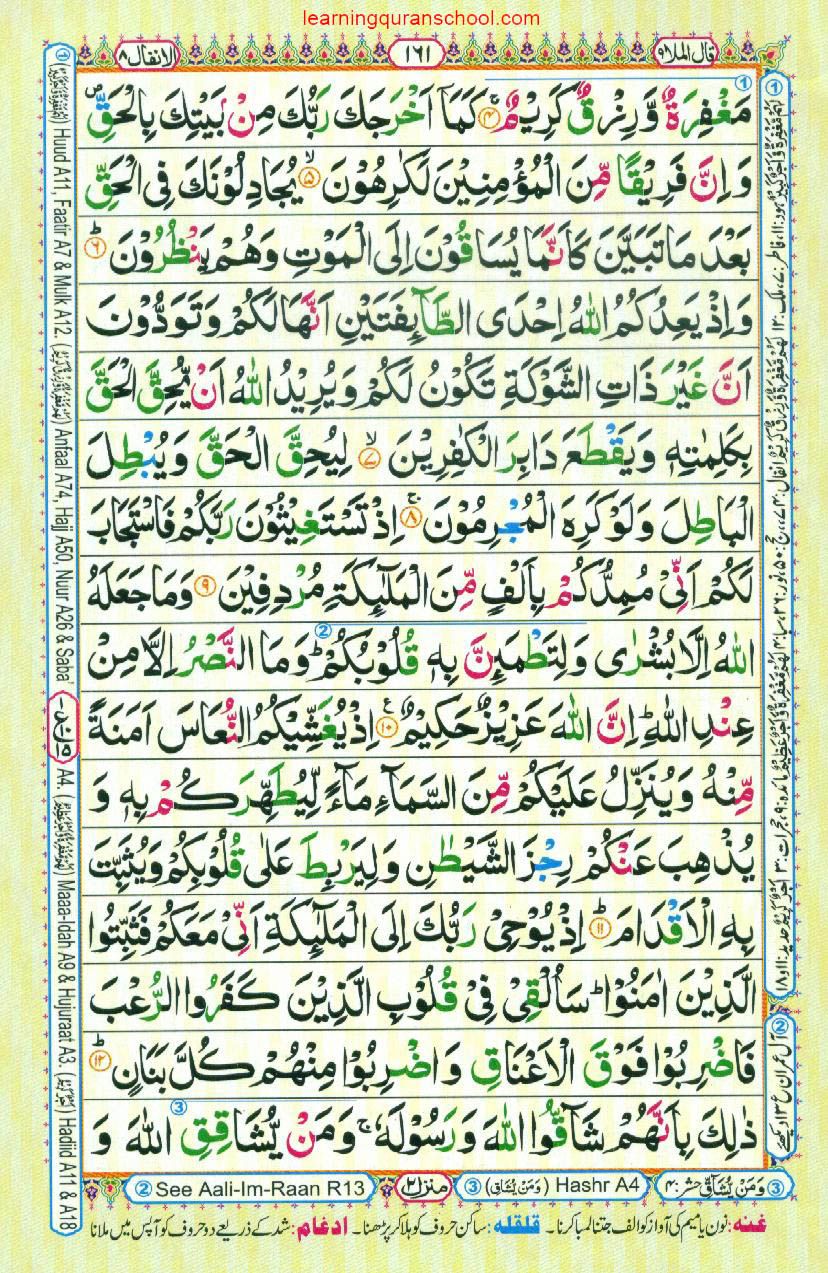 learningquranschool.com
قال الملا٩
١٦١
الانفال٨
مَغْفِرَةٌ وَّرِزْقٌ كَرِيْمٌ ۚ ﴿۴﴾ كَمَاۤ اَخْرَجَكَ رَبُّكَ مِنْۢ بَيْتِكَ بِالْحَقِّ ۪
وَ اِنَّ فَرِيْقًا مِّنَ الْمُؤْمِنِيْنَ لَكٰرِهُوْنَ ۙ ﴿۵﴾ يُجَادِلُوْنَكَ فِي الْحَقِّ
بَعْدَ مَا تَبَيَّنَ كَاَنَّمَا يُسَاقُوْنَ اِلَى الْمَوْتِ وَهُمْ يَنْظُرُوْنَ ؕ ﴿۶﴾
وَاِذْ يَعِدُكُمُ اللّٰهُ اِحْدَى الطَّآىِٕفَتَيْنِ اَنَّهَا لَكُمْ وَتَوَدُّوْنَ
اَنَّ غَيْرَ ذَاتِ الشَّوْكَةِ تَكُوْنُ لَكُمْ وَيُرِيْدُ اللّٰهُ اَنْ يُّحِقَّ الْحَقَّ
بِكَلِمٰتِهٖ وَيَقْطَعَ دَابِرَ الْكٰفِرِيْنَ ۙ ﴿۷﴾ لِيُحِقَّ الْحَقَّ وَيُبْطِلَ
الْبَاطِلَ وَلَوْ كَرِهَ الْمُجْرِمُوْنَ ۚ ﴿۸﴾ اِذْ تَسْتَغِيْثُوْنَ رَبَّكُمْ فَاسْتَجَابَ
لَكُمْ اَنِّيْ مُمِدُّكُمْ بِاَلْفٍ مِّنَ الْمَلٰٓىِٕكَةِ مُرْدِفِيْنَ ﴿۹﴾ وَمَا جَعَلَهُ
اللّٰهُ اِلَّا بُشْرٰى وَلِتَطْمَىِٕنَّ بِهٖ قُلُوْبُكُمْ ؕ وَمَا النَّصْرُ اِلَّا مِنْ
عِنْدِ اللّٰهِ ؕ اِنَّ اللّٰهَ عَزِيْزٌ حَكِيْمٌ ﴿۱۰﴾ ع اِذْ يُغَشِّيْكُمُ النُّعَاسَ اَمَنَةً
مِّنْهُ وَيُنَزِّلُ عَلَيْكُمْ مِّنَ السَّمَآءِ مَآءً لِّيُطَهِّرَكُمْ بِهٖ وَ
يُذْهِبَ عَنْكُمْ رِجْزَ الشَّيْطٰنِ وَلِيَرْبِطَ عَلٰى قُلُوْبِكُمْ وَيُثَبِّتَ
بِهِ الْاَقْدَامَ ؕ ﴿۱۱﴾ اِذْ يُوْحِيْ رَبُّكَ اِلَى الْمَلٰٓىِٕكَةِ اَنِّيْ مَعَكُمْ فَثَبِّتُوا
الَّذِيْنَ اٰمَنُوْا ؕ سَاُلْقِيْ فِيْ قُلُوْبِ الَّذِيْنَ كَفَرُوا الرُّعْبَ
فَاضْرِبُوْا فَوْقَ الْاَعْنَاقِ وَاضْرِبُوْا مِنْهُمْ كُلَّ بَنَانٍ ؕ ﴿۱۲﴾
ذٰلِكَ بِاَنَّهُمْ شَآقُّوا اللّٰهَ وَرَسُوْلَهٗ ۚ وَمَنْ يُّشَاقِقِ اللّٰهَ وَ
① Huud A11, Faatir A7 & Mulk A12. Anfaal A74, Hajj A50, Nuur A26 & Saba' A4. Maaa-Idah A9 & Hujuraat A3. Hadiid A11 & A18
② See Aali-Im-Raan R13
منزل٢
③ (وَمَنْ يُّشَاقِّ) Hashr A4
③ وَمَنْ يُّشَاقِّ حشر:۴
غنه: نون یا میم کی آواز کو الف جتنا لمبا کرنا۔ قلقله: ساکن حروف کو ہلا کر پڑھنا۔ ادغام: شد کے ذریعے دو حروف کو آپس میں ملانا